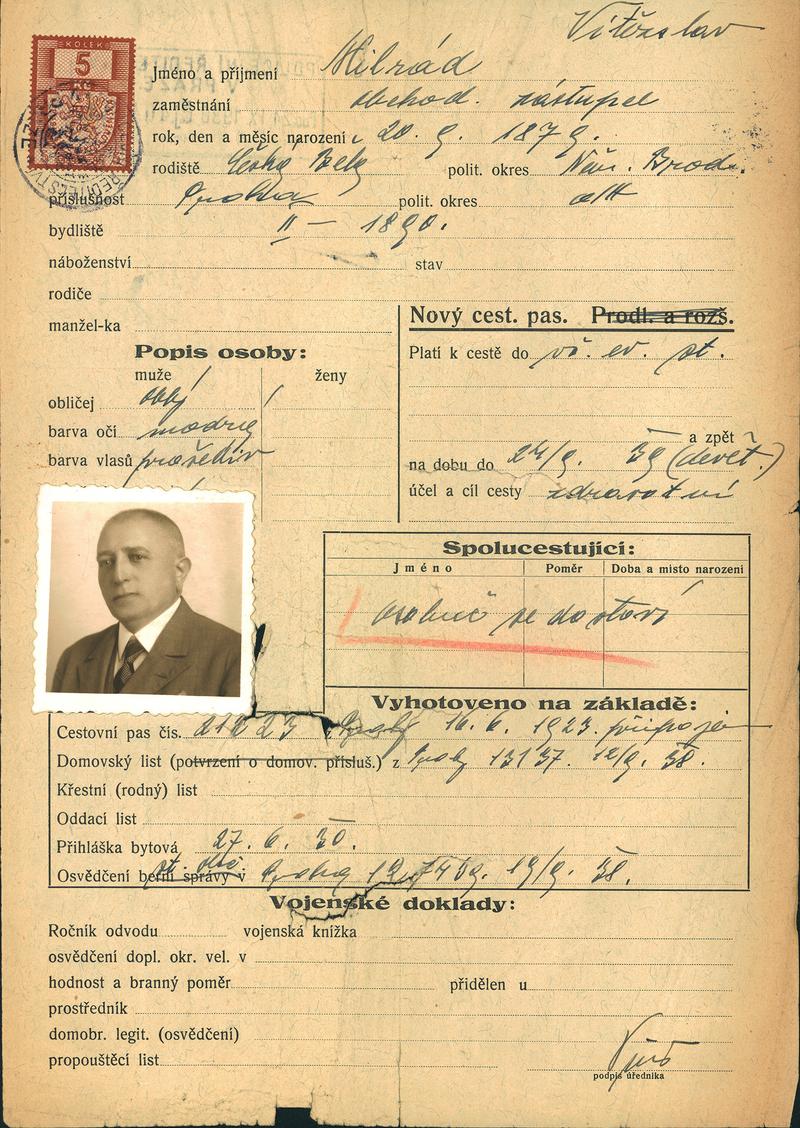 Vítězslav
KOLEK
5
Jméno a příjmení Milrád
zaměstnání obchod. zástupce
rok, den a měsíc narození 20. 9. 1879.
rodiště Český Belg polit. okres Něm. Brod.
příslušnost Praha polit. okres
bydliště II – 1890.
náboženství stav
rodiče
manžel-ka
Nový cest. pas. Prodl. a rozš.
Popis osoby:
Platí k cestě do vš. ev. st.
muže ženy
obličej obl.
barva očí modrý
a zpět
barva vlasů prošediv
na dobu do 24/9. 39 (devět.)
účel a cíl cesty zdravotní
Spolucestující:
Jméno Poměr Doba a místo narození
osobně se dostaví
Vyhotoveno na základě:
Cestovní pas čís. 21223 Prahy 16. 6. 1923. připojen
Domovský list (potvrzení o domov. přísluš.) z Prahy 13137. 12/9. 38.
Křestní (rodný) list
Oddací list
Přihláška bytová 27. 6. 30.
Osvědčení berní správy v st. obč. Praha 19/9. 38.
Vojenské doklady:
Ročník odvodu vojenská knížka
osvědčení dopl. okr. vel. v
hodnost a branný poměr přidělen u
prostředník
domobr. legit. (osvědčení)
propouštěcí list
podpis úředníka